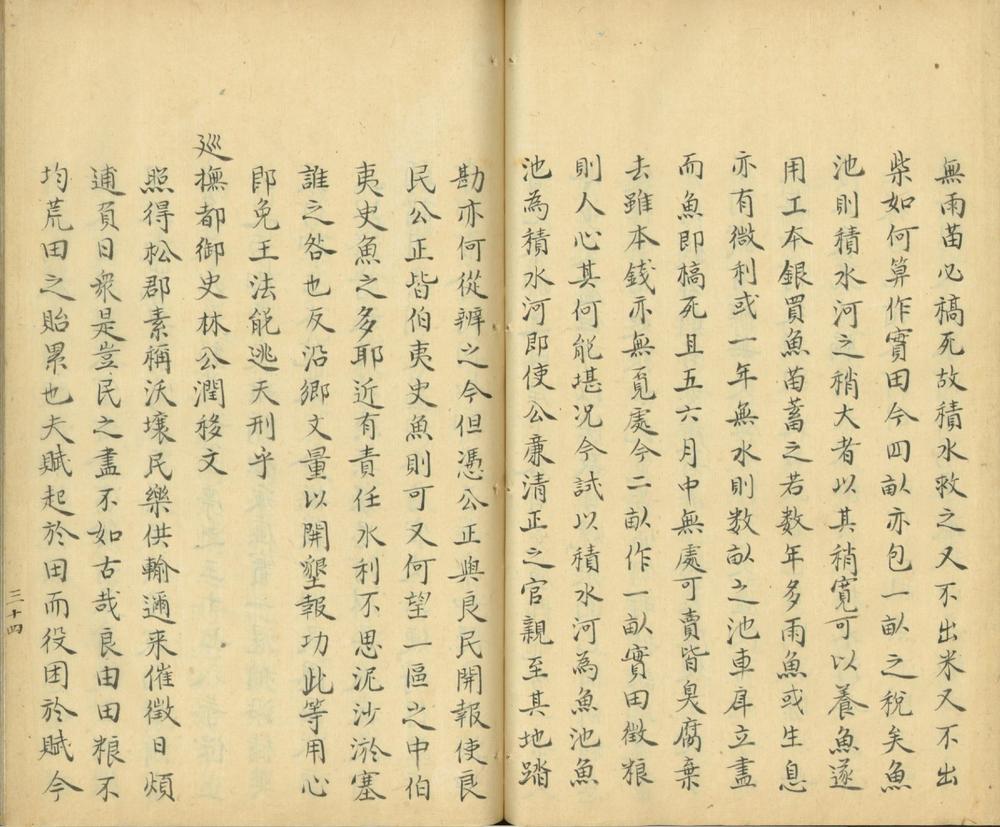 無雨苗必稿死故積水救之又不出米又不出
柴如何算作實田今四畝亦包一畝之稅矣魚
池則積水河之稍大者以其稍寬可以養魚遂
用工夲銀買魚苗蓄之若数年多雨魚或生息
亦有微利或一年無水則数畝之池車戽立盡
而魚即槁死且五六月中無處可賣皆臭腐棄
去雖本錢亦無覓處今二畝作一畝實田徵粮
則人心其何能堪况今試以積水河為魚池魚
池為積水河即使公廉清正之官親至其地踏
勘亦何從辨之今但憑公正與良民開報使良
民公正皆伯夷史魚則可又何望一區之中伯
夷史魚之多耶近有責任水利不思泥沙淤塞
誰之咎也反沿鄉丈量以開墾報功此等用心
即免王法能逃天刑乎
廵撫都御史林公潤移文
照得松郡素稱沃壤民樂供輸邇来催徵日煩
逋負日衆是豈民之盡不如古哉良由田粮不
均荒田之貽累也夫賦起於田而役困於賦今
三十四